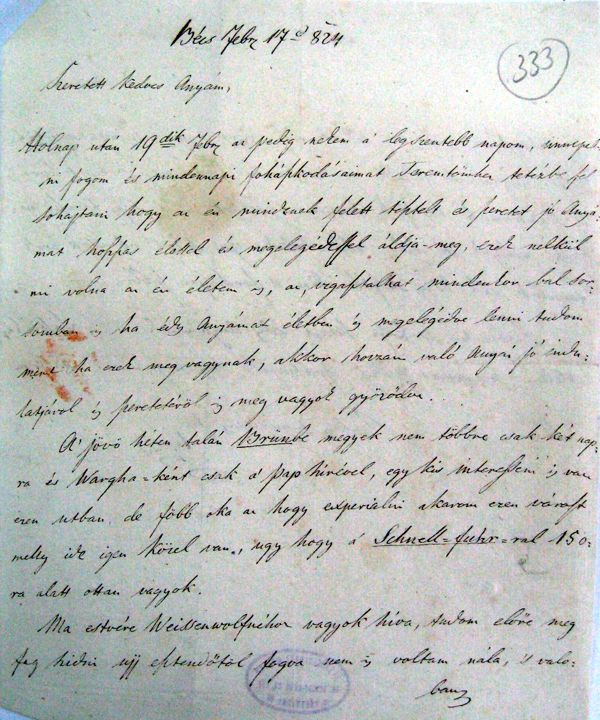 Bécs Febr 17d 824
333
Szeretett kedves Anyám,
Holnap után 19dik Febr az pedig nékem á legszentebb napom, ünnepel-
ni fogom és mindennapi fohászkodásaimat Teremtömhez fel
sohajtani hogy az én mindenek felett tisztelt és szeretet jó Anyá-
mat hosszas élettel és megelegédessel áldja-meg, ezek nélkül
mi volna az én életem is, az, vigasztalhat mindenkor bal sor-
somban is ha édes Anyámat életben és megelégédve lenni tudom
mert ha ezek meg vagynak, akkor hozzám való Anyái jó indu-
latjáról is szeretetéröl is meg vagyok gyözödve..
A' jövö héten talán Brünbe megyek nem többre csak két nap-
ra és Wargha=ként csak á' pap hírével, egy kis interesséni is van
ezen utban, de föbb oka az hogy experiálni akarom ezen várast
melly ide igen közel van, ugy hogy á Schnell=fuhr=ral 15 o-
ra alatt ottan vagyok.
Ma estvére Weissenwolfnéhoz vagyok híva, tudom elöre meg
fog szidni ujj esztendötöl fogva nem is voltam nála, 's való-
ban